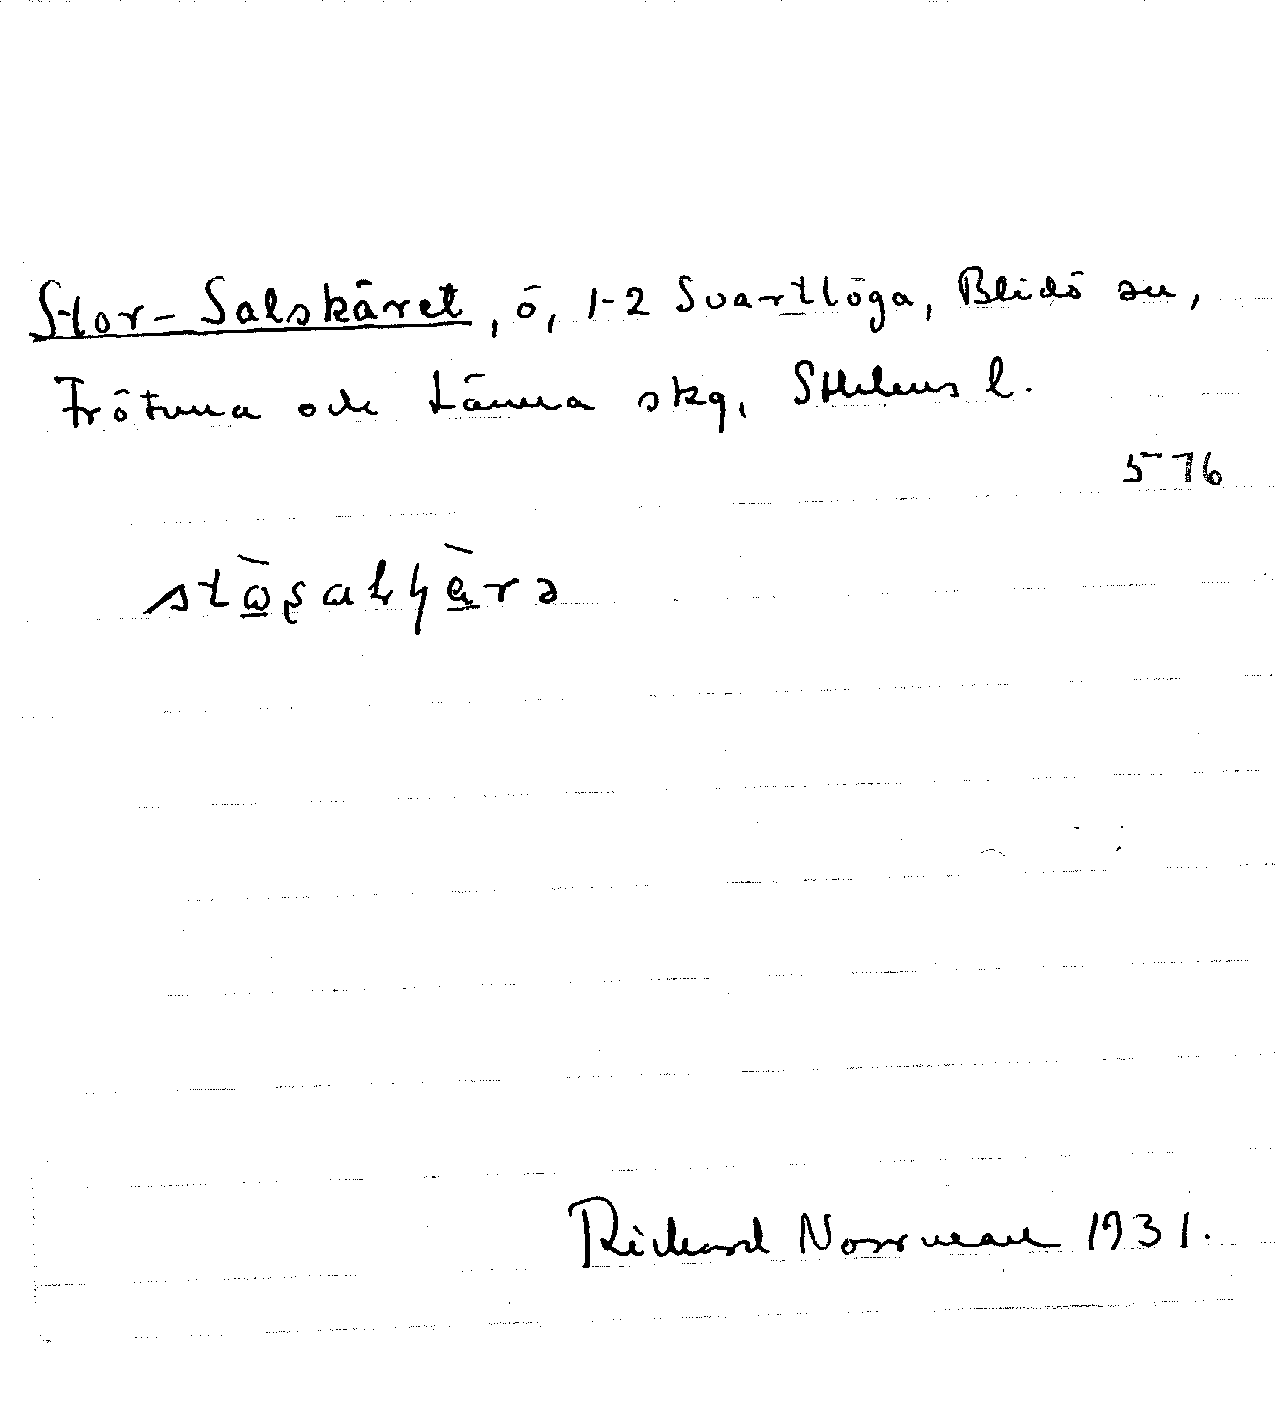 Stor-Salskäret, ö, 1-2 Svartlöga, Blidö sn,
Frötuna och Länna skg, Sthlms l.
576
Rickard Norrman 1931.